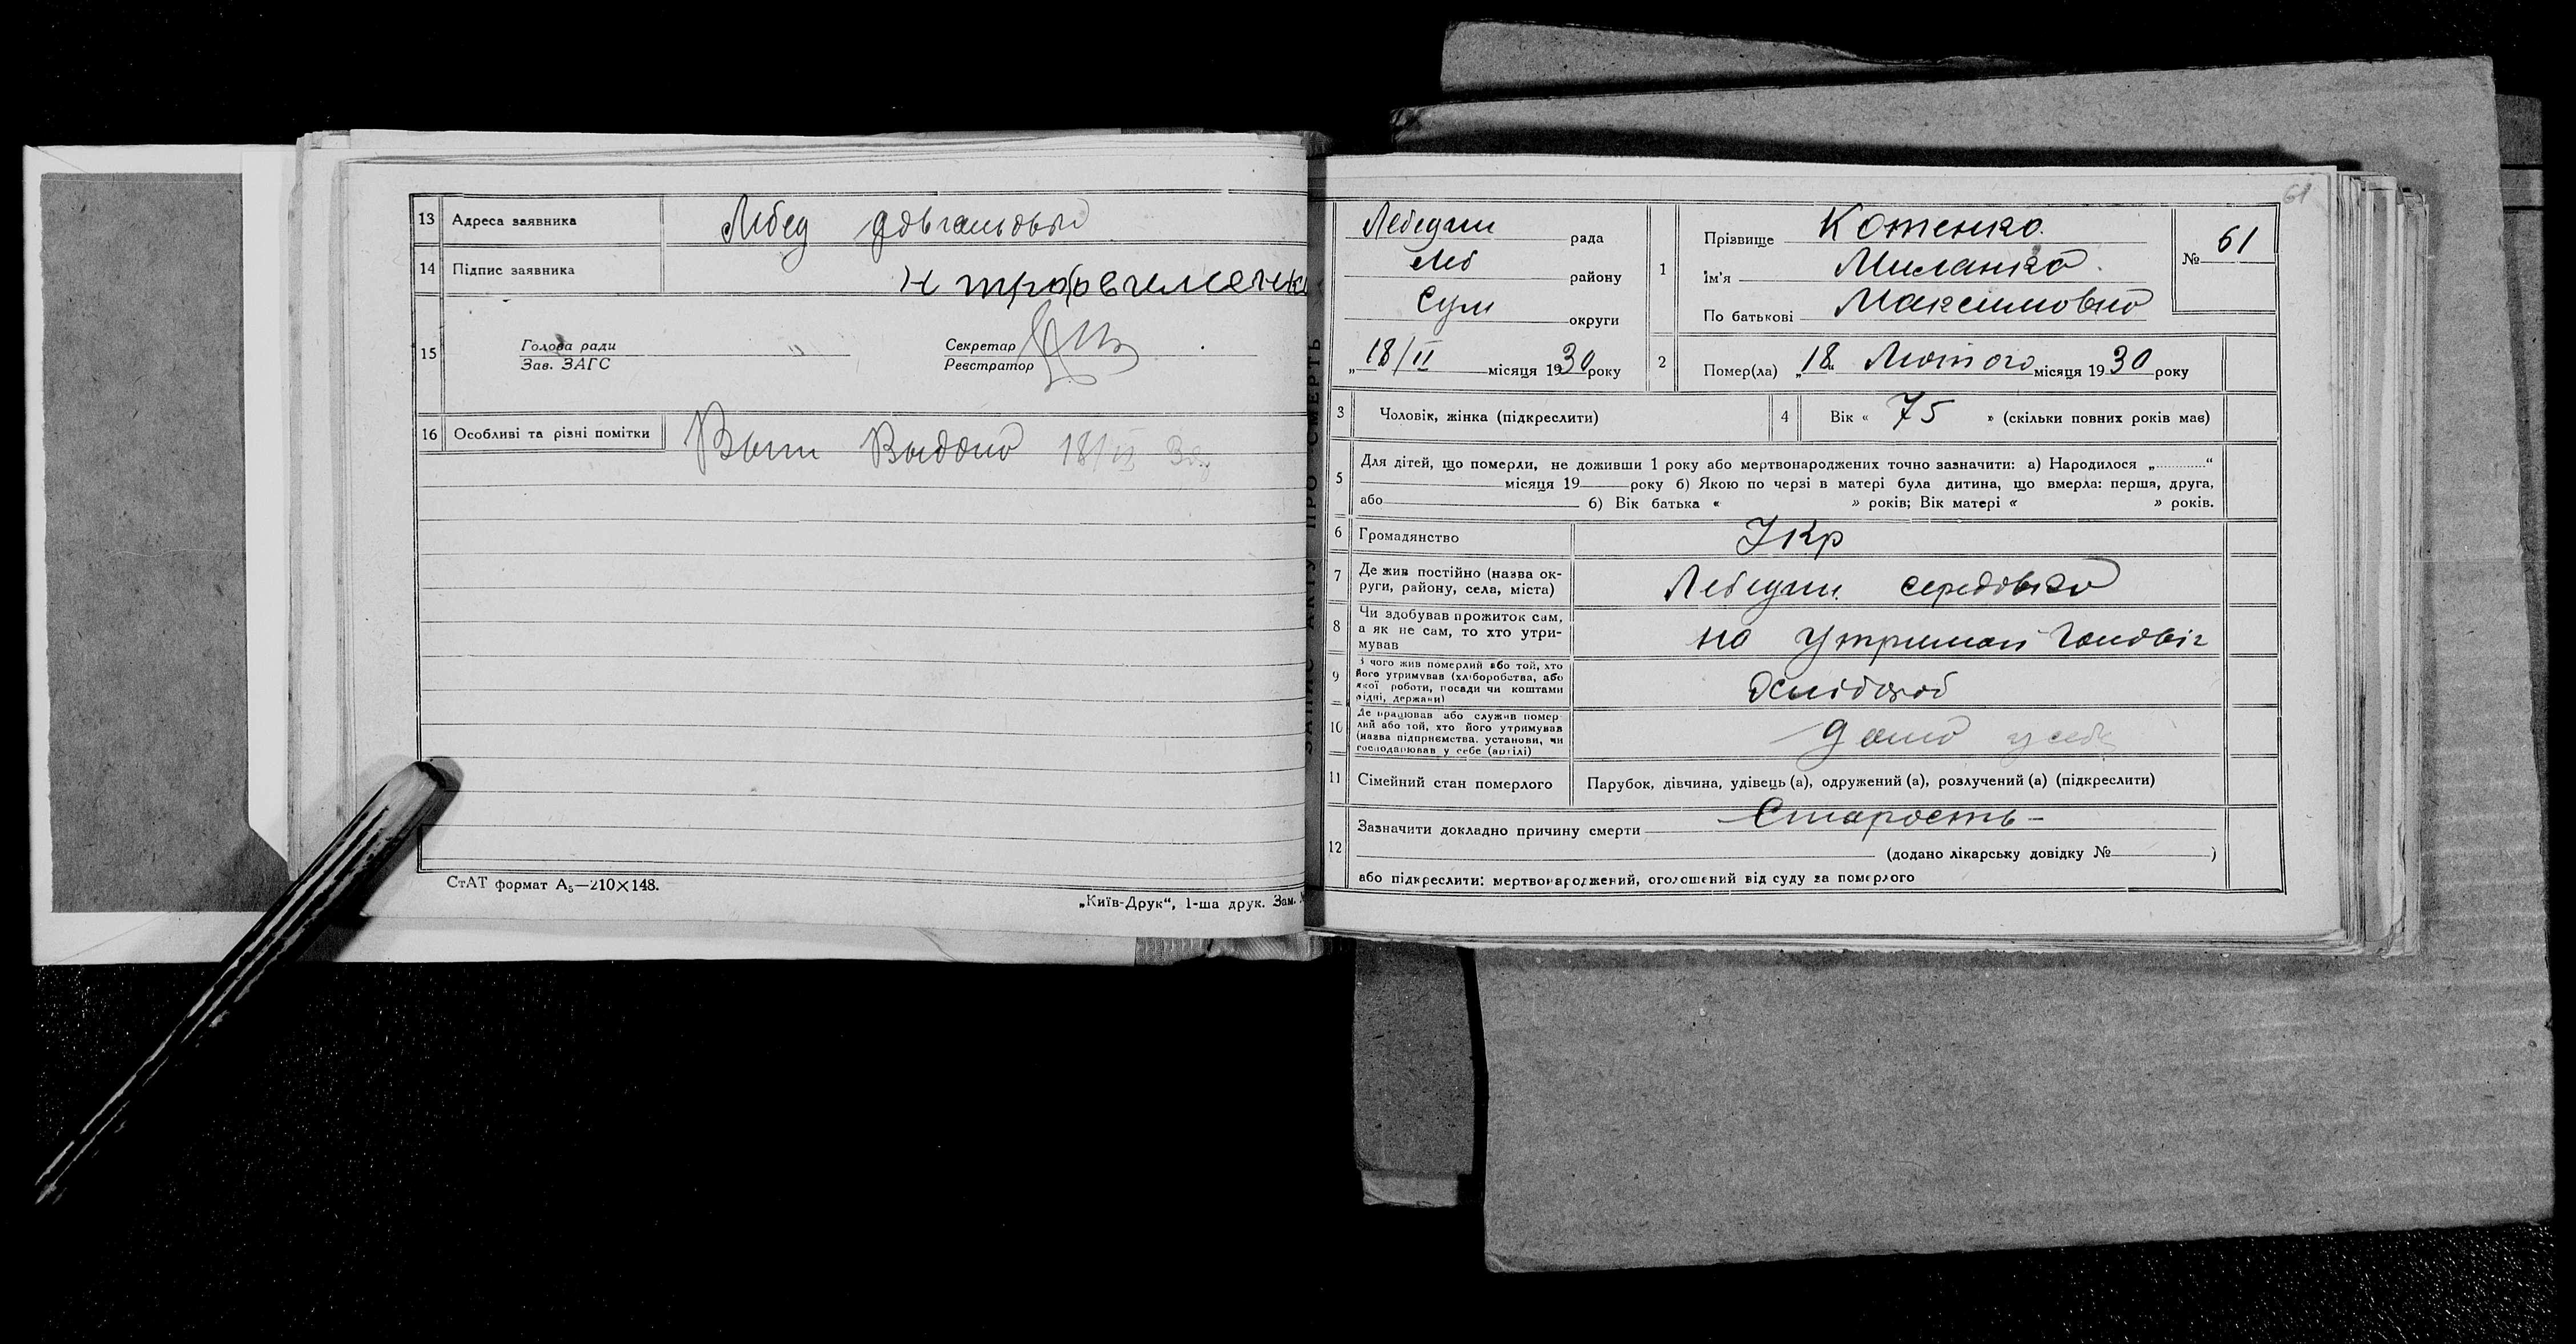 13 Адреса заявника Лебед
14 Підпис заявника
15 Голова ради
Зав. ЗАГС
Секретар
Реєстратор
16 Особливі та різні помітки Выдано 18/II 30
СтАТ формат А5—210×148.
„Київ-Друк“, 1-ша друк. Зам.
ЗАПИС АКТУ ПРО СМЕРТЬ
61
Лебедин рада
Леб району
Сум округи
„18/II місяця 1930 року
1 Прізвище Котенко
Ім'я Миланка
По батькові Максимовна
№ 61
2 Помер(ла) „18“ Лютого місяця 1930 року
3 Чоловік, жінка (підкреслити)
4 Вік « 75 » (скільки повних років має)
5 Для дітей, що померли, не доживши 1 року або мертвонароджених точно зазначити: а) Народилося „ “
місяця 19 року б) Якою по черзі в матері була дитина, що вмерла: перша, друга,
або б) Вік батька « » років; Вік матері « » років.
6 Громадянство Укр
7 Де жив постійно (назва ок-
руги, району, села, міста) Лебедин
8 Чи здобував прожиток сам,
а як не сам, то хто утри-
мував на утриман чоловік
9 З чого жив померлий або той, хто
його утримував (хліборобства, або
якої роботи, посади чи коштами
рідні, держави) хлібороб
10 Де працював або служив помер
лий або той, хто його утримував
(назва підприємства, установи, чи
господарював у себе (артілі) дома у себе
11 Сімейний стан померлого Парубок, дівчина, удівець (а), одружений (а), розлучений (а) (підкреслити)
12 Зазначити докладно причину смерти Старость
(додано лікарську довідку № )
або підкреслити: мертвонароджений, оголошений від суду за померлого